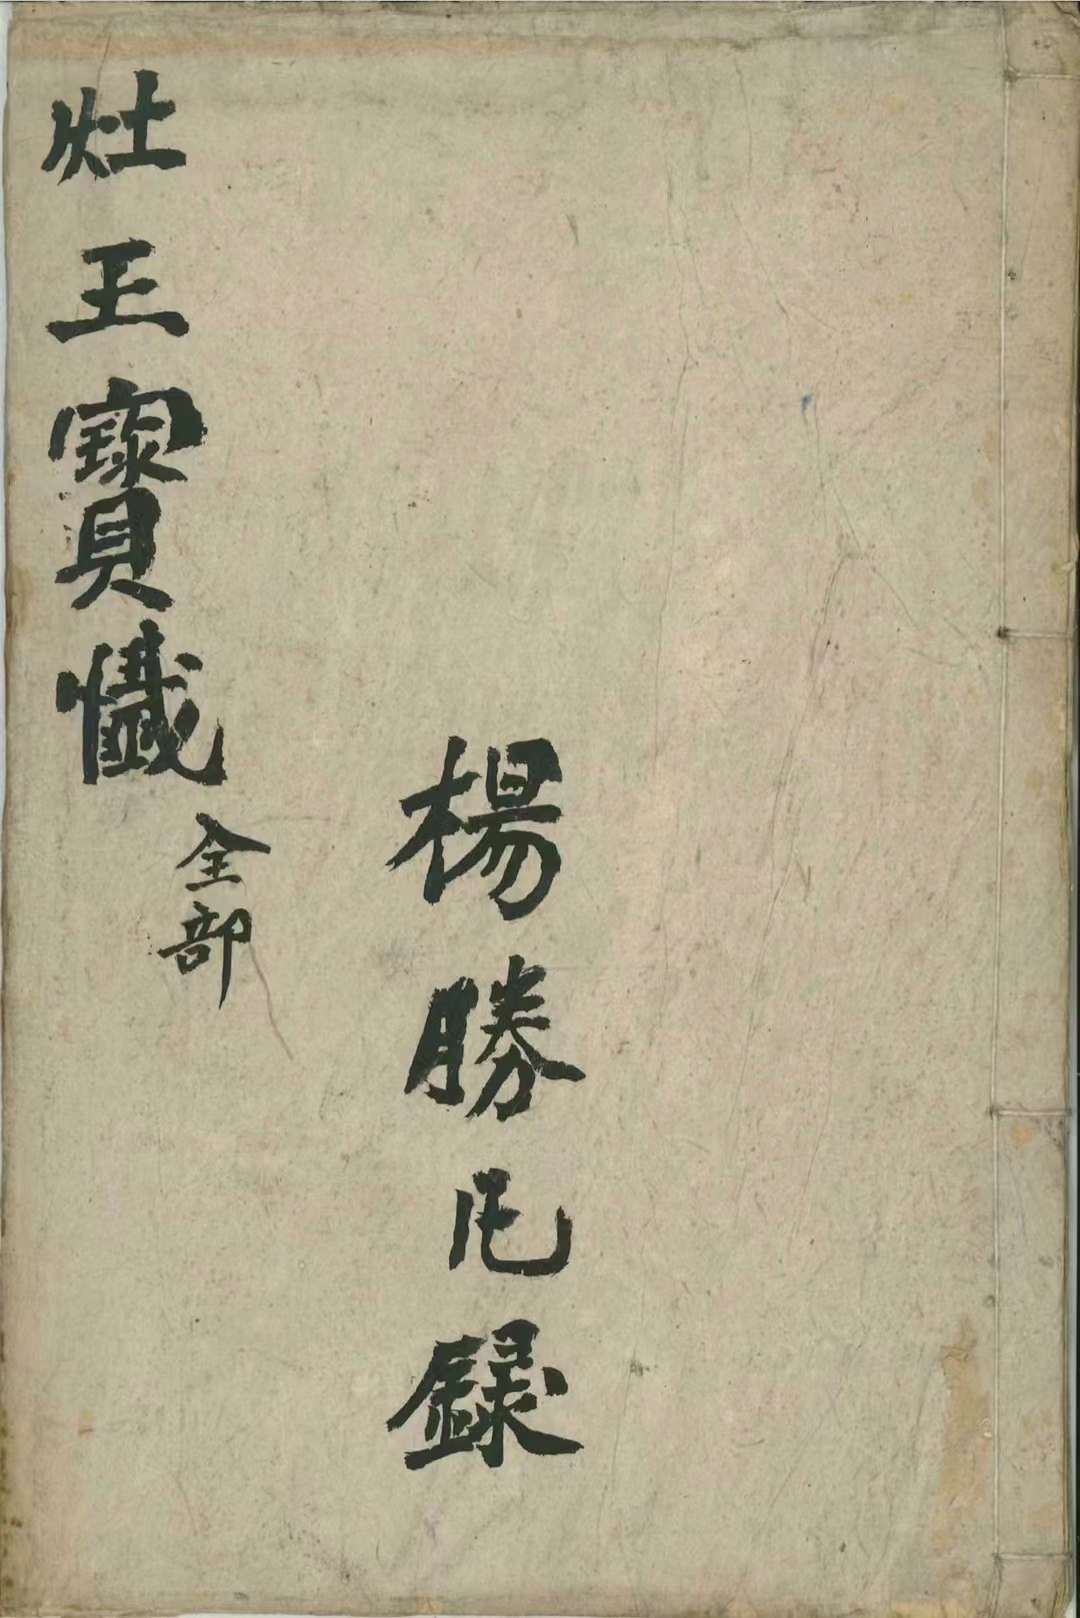 楊勝錄
灶王寶懺全部